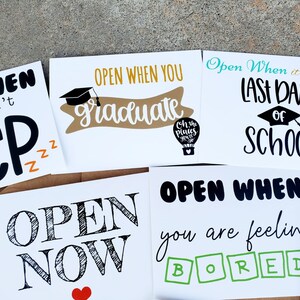 OPEN WHEN YOU
graduate
oh the
places
you'll
go
Open When
LAST DA
of
SCHO
EN
't
EP
zzz
OPEN
NOW
OPEN WHEN
you are feelin
BORED